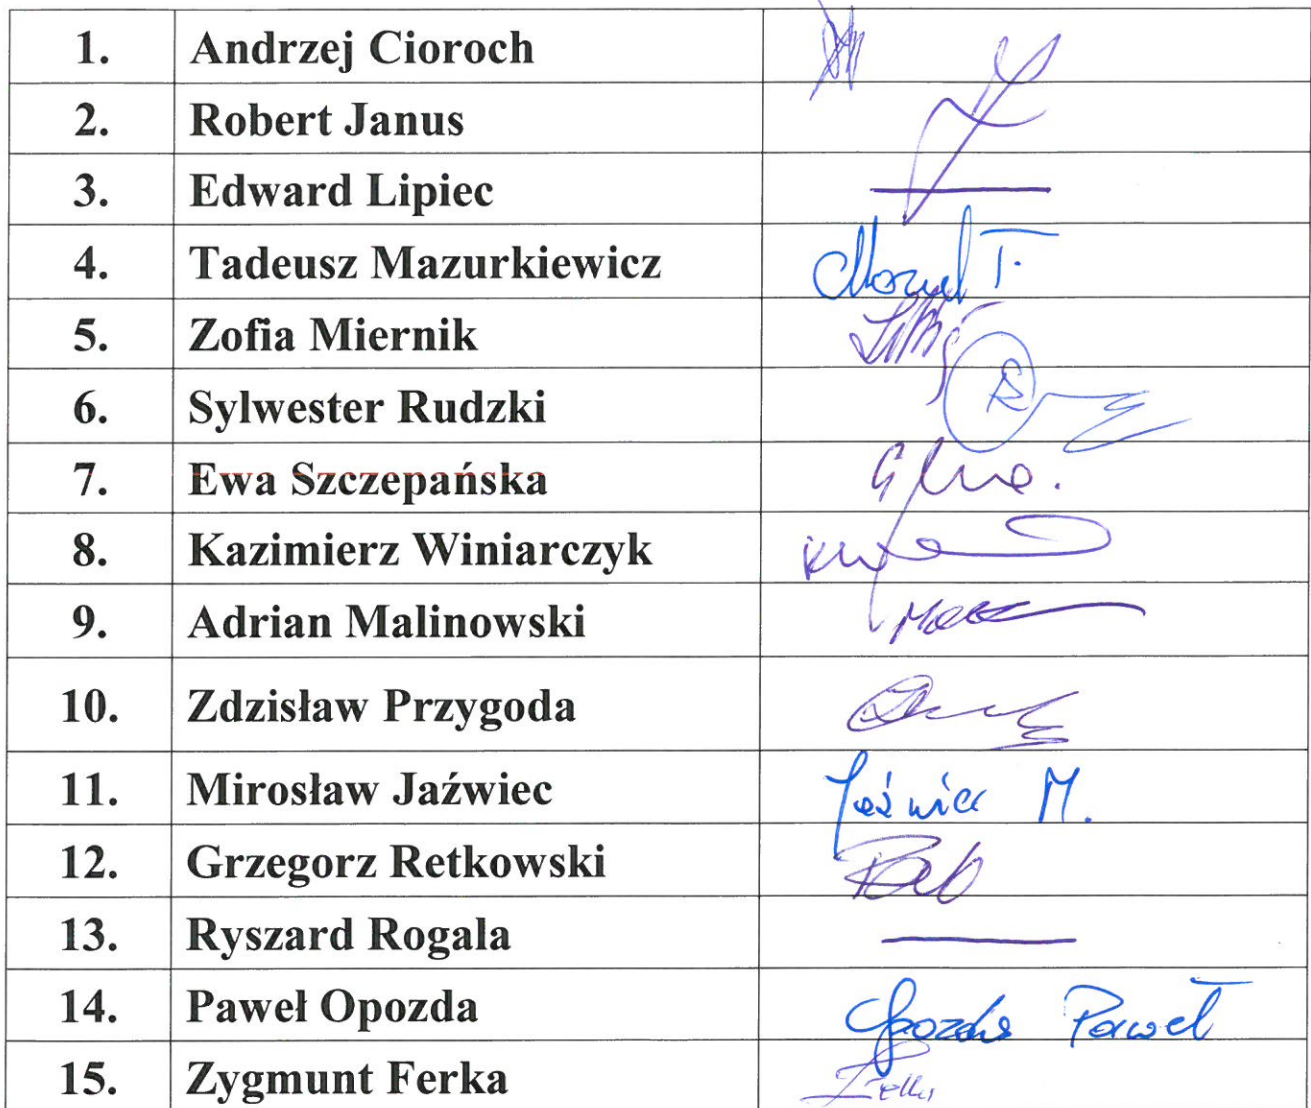 1. Andrzej Cioroch
2. Robert Janus
3. Edward Lipiec
4. Tadeusz Mazurkiewicz T.
5. Zofia Miernik
6. Sylwester Rudzki
7. Ewa Szczepańska
8. Kazimierz Winiarczyk
9. Adrian Malinowski
10. Zdzisław Przygoda
11. Mirosław Jaźwiec Jaźwiec M.
12. Grzegorz Retkowski
13. Ryszard Rogala
14. Paweł Opozda Opozda Paweł
15. Zygmunt Ferka